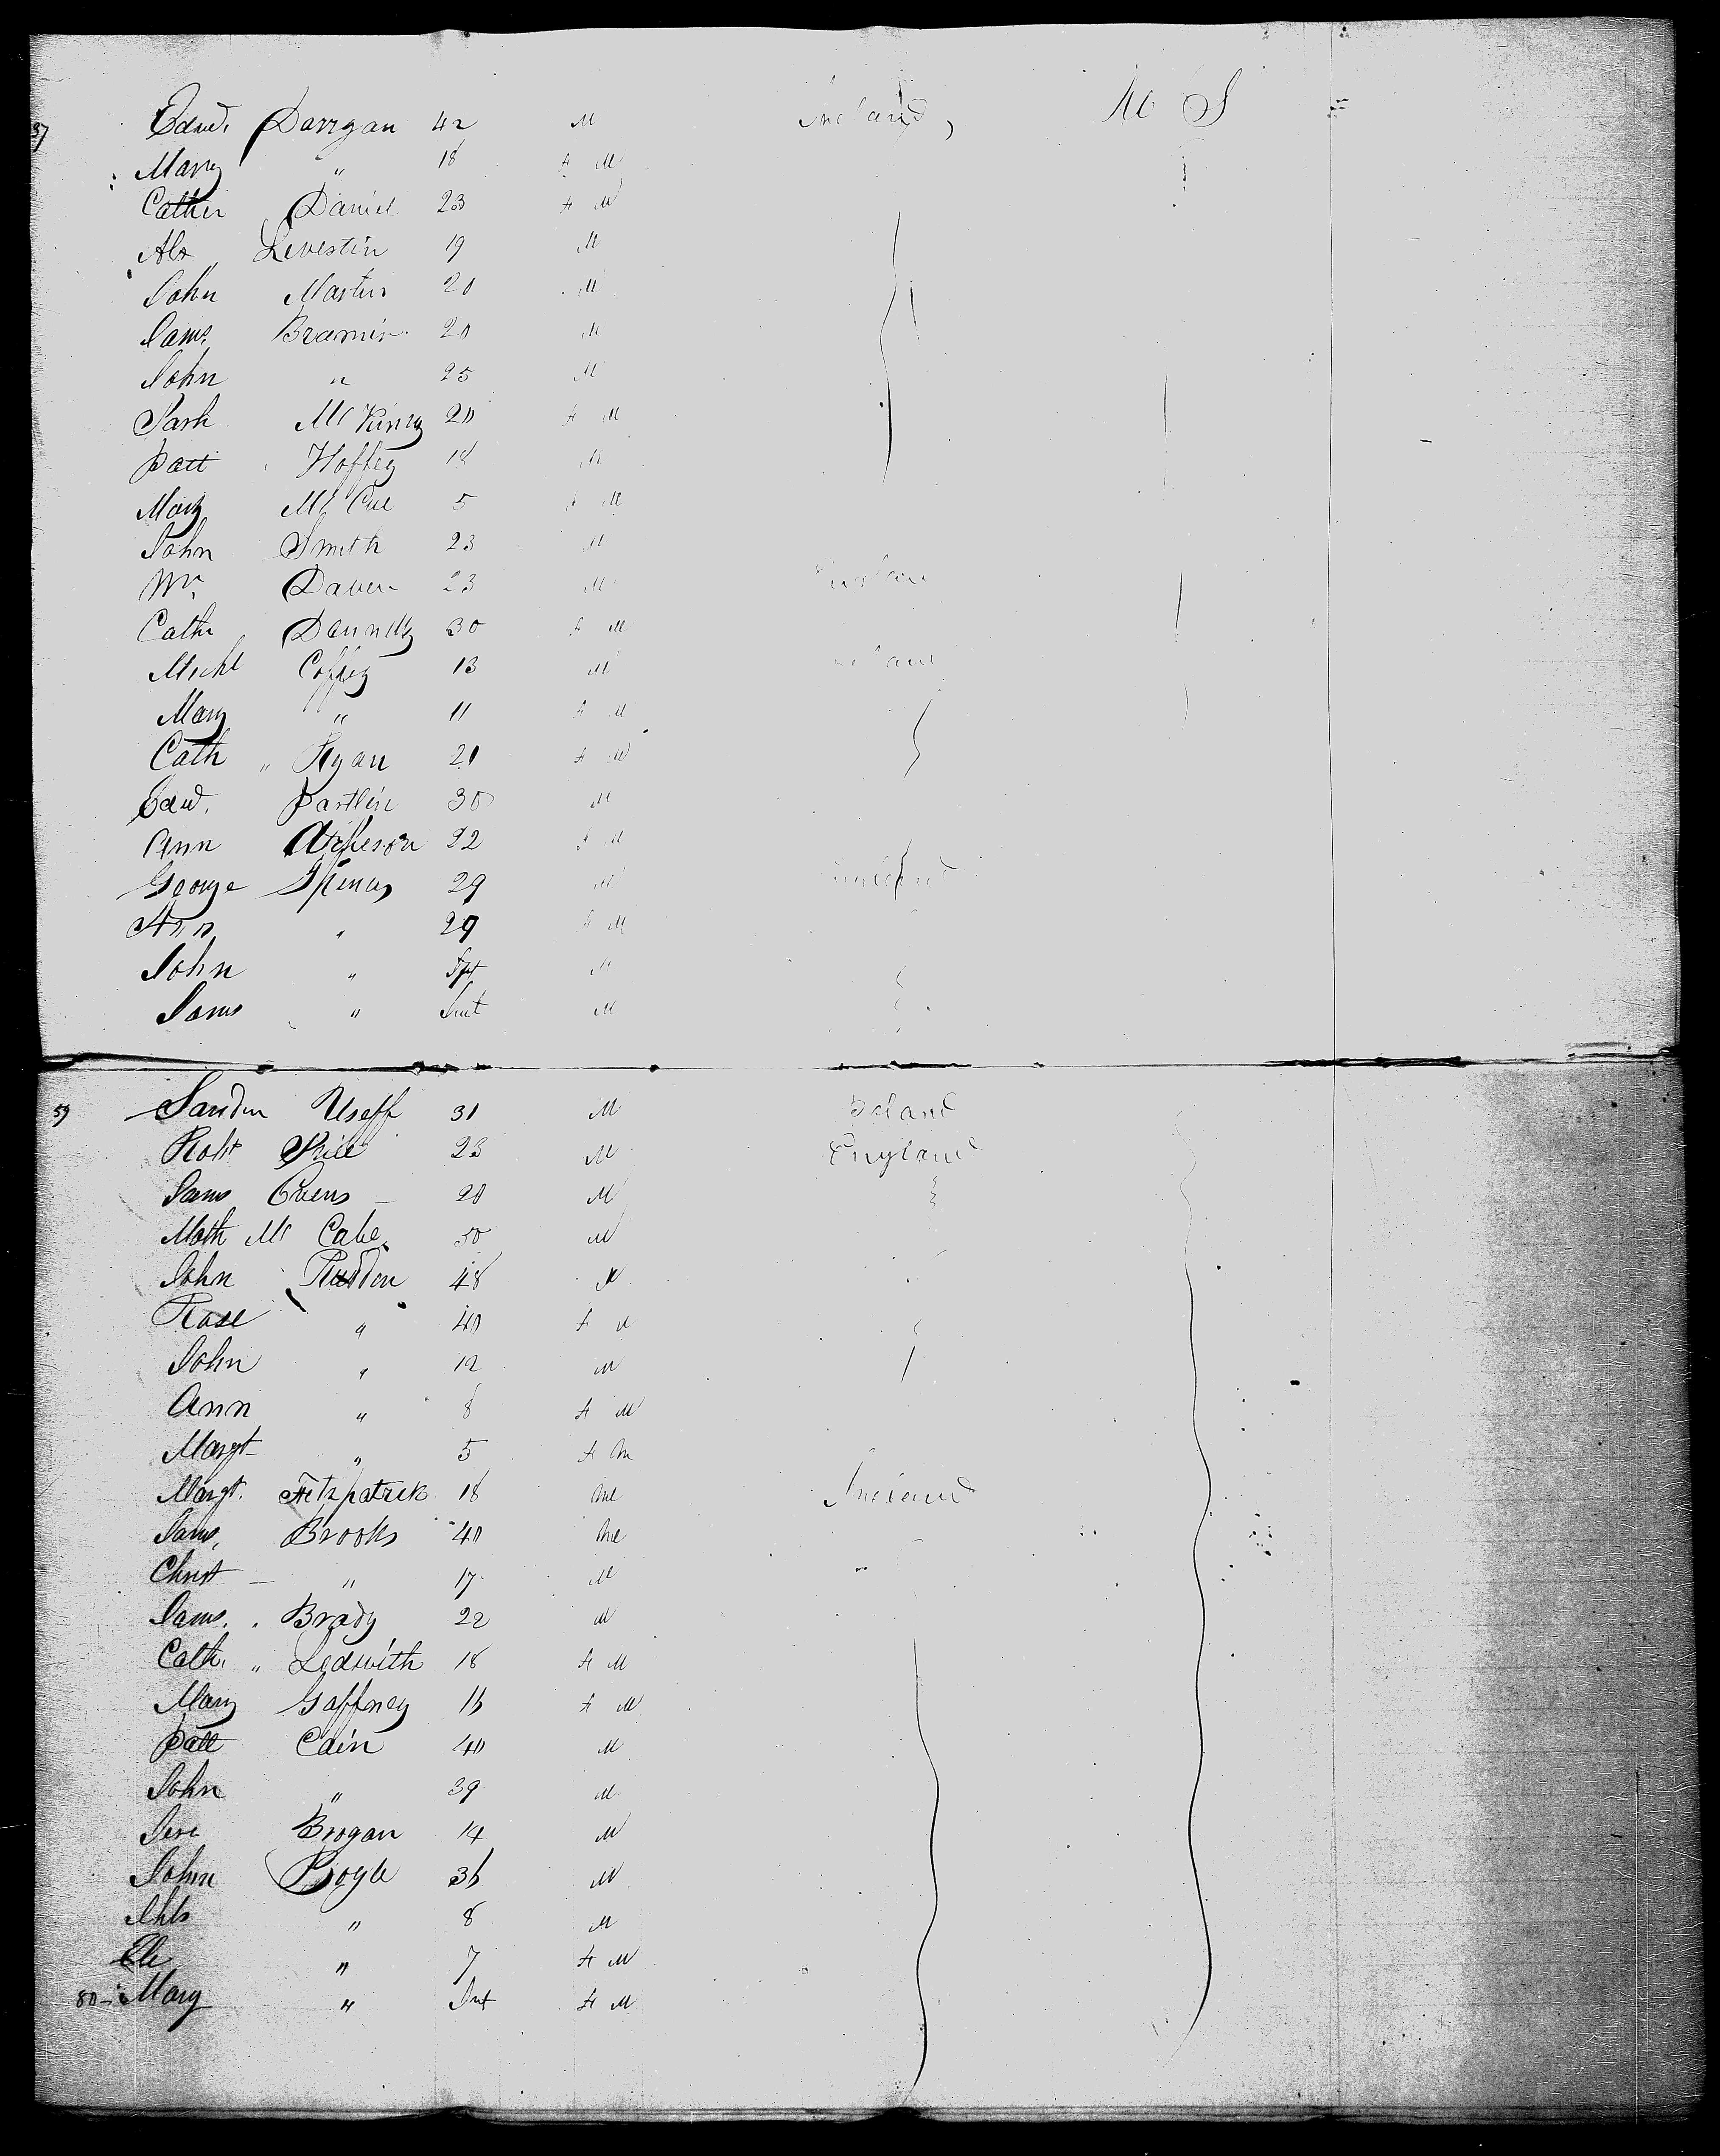 37 Edwd. Dorrgan 42 M Ireland, U S
Mary " 18 F M
Cather Daniel 23 F M
Alx Levestin 19 M
John Martin 20 M
Jams. 20 M
John " 25 M
Sarh Mc Kinny 20 F M
Patt Hoffey 18 M
Mary Mc Cue 5 F M
John Smith 23 M
Wm. Daven 23 M
Cath 30 F M
Michl Coffey 13 M
Mary " 11 F M
Cath " Ryan 21 F M
Edwd. Partlin 30 M
Ann 22 F M
George 29 M
Ann " 29 F M
John " M
Jams " Inft M
59 31 M Ireland
Robt 23 M England
Jams Owens 20 M
Math Mc Cabe 50 M
John 48 M
Rose " 40 F M
John " 12 M
Ann " 8 F M
Margt " 5 F M
Margt. Fitzpatrick 18 M Ireland
Jams, Brooks 40 M
Christ " 17 M
Jams. Brady 22 M
Cath. " Ledwith 18 F M
Mary Gaffney 16 F M
Patt Cain 40 M
John " 39 M
Brogan 14 M
John Boyle 36 M
" 8 M
" 7 F M
80 Mary " Inft F M